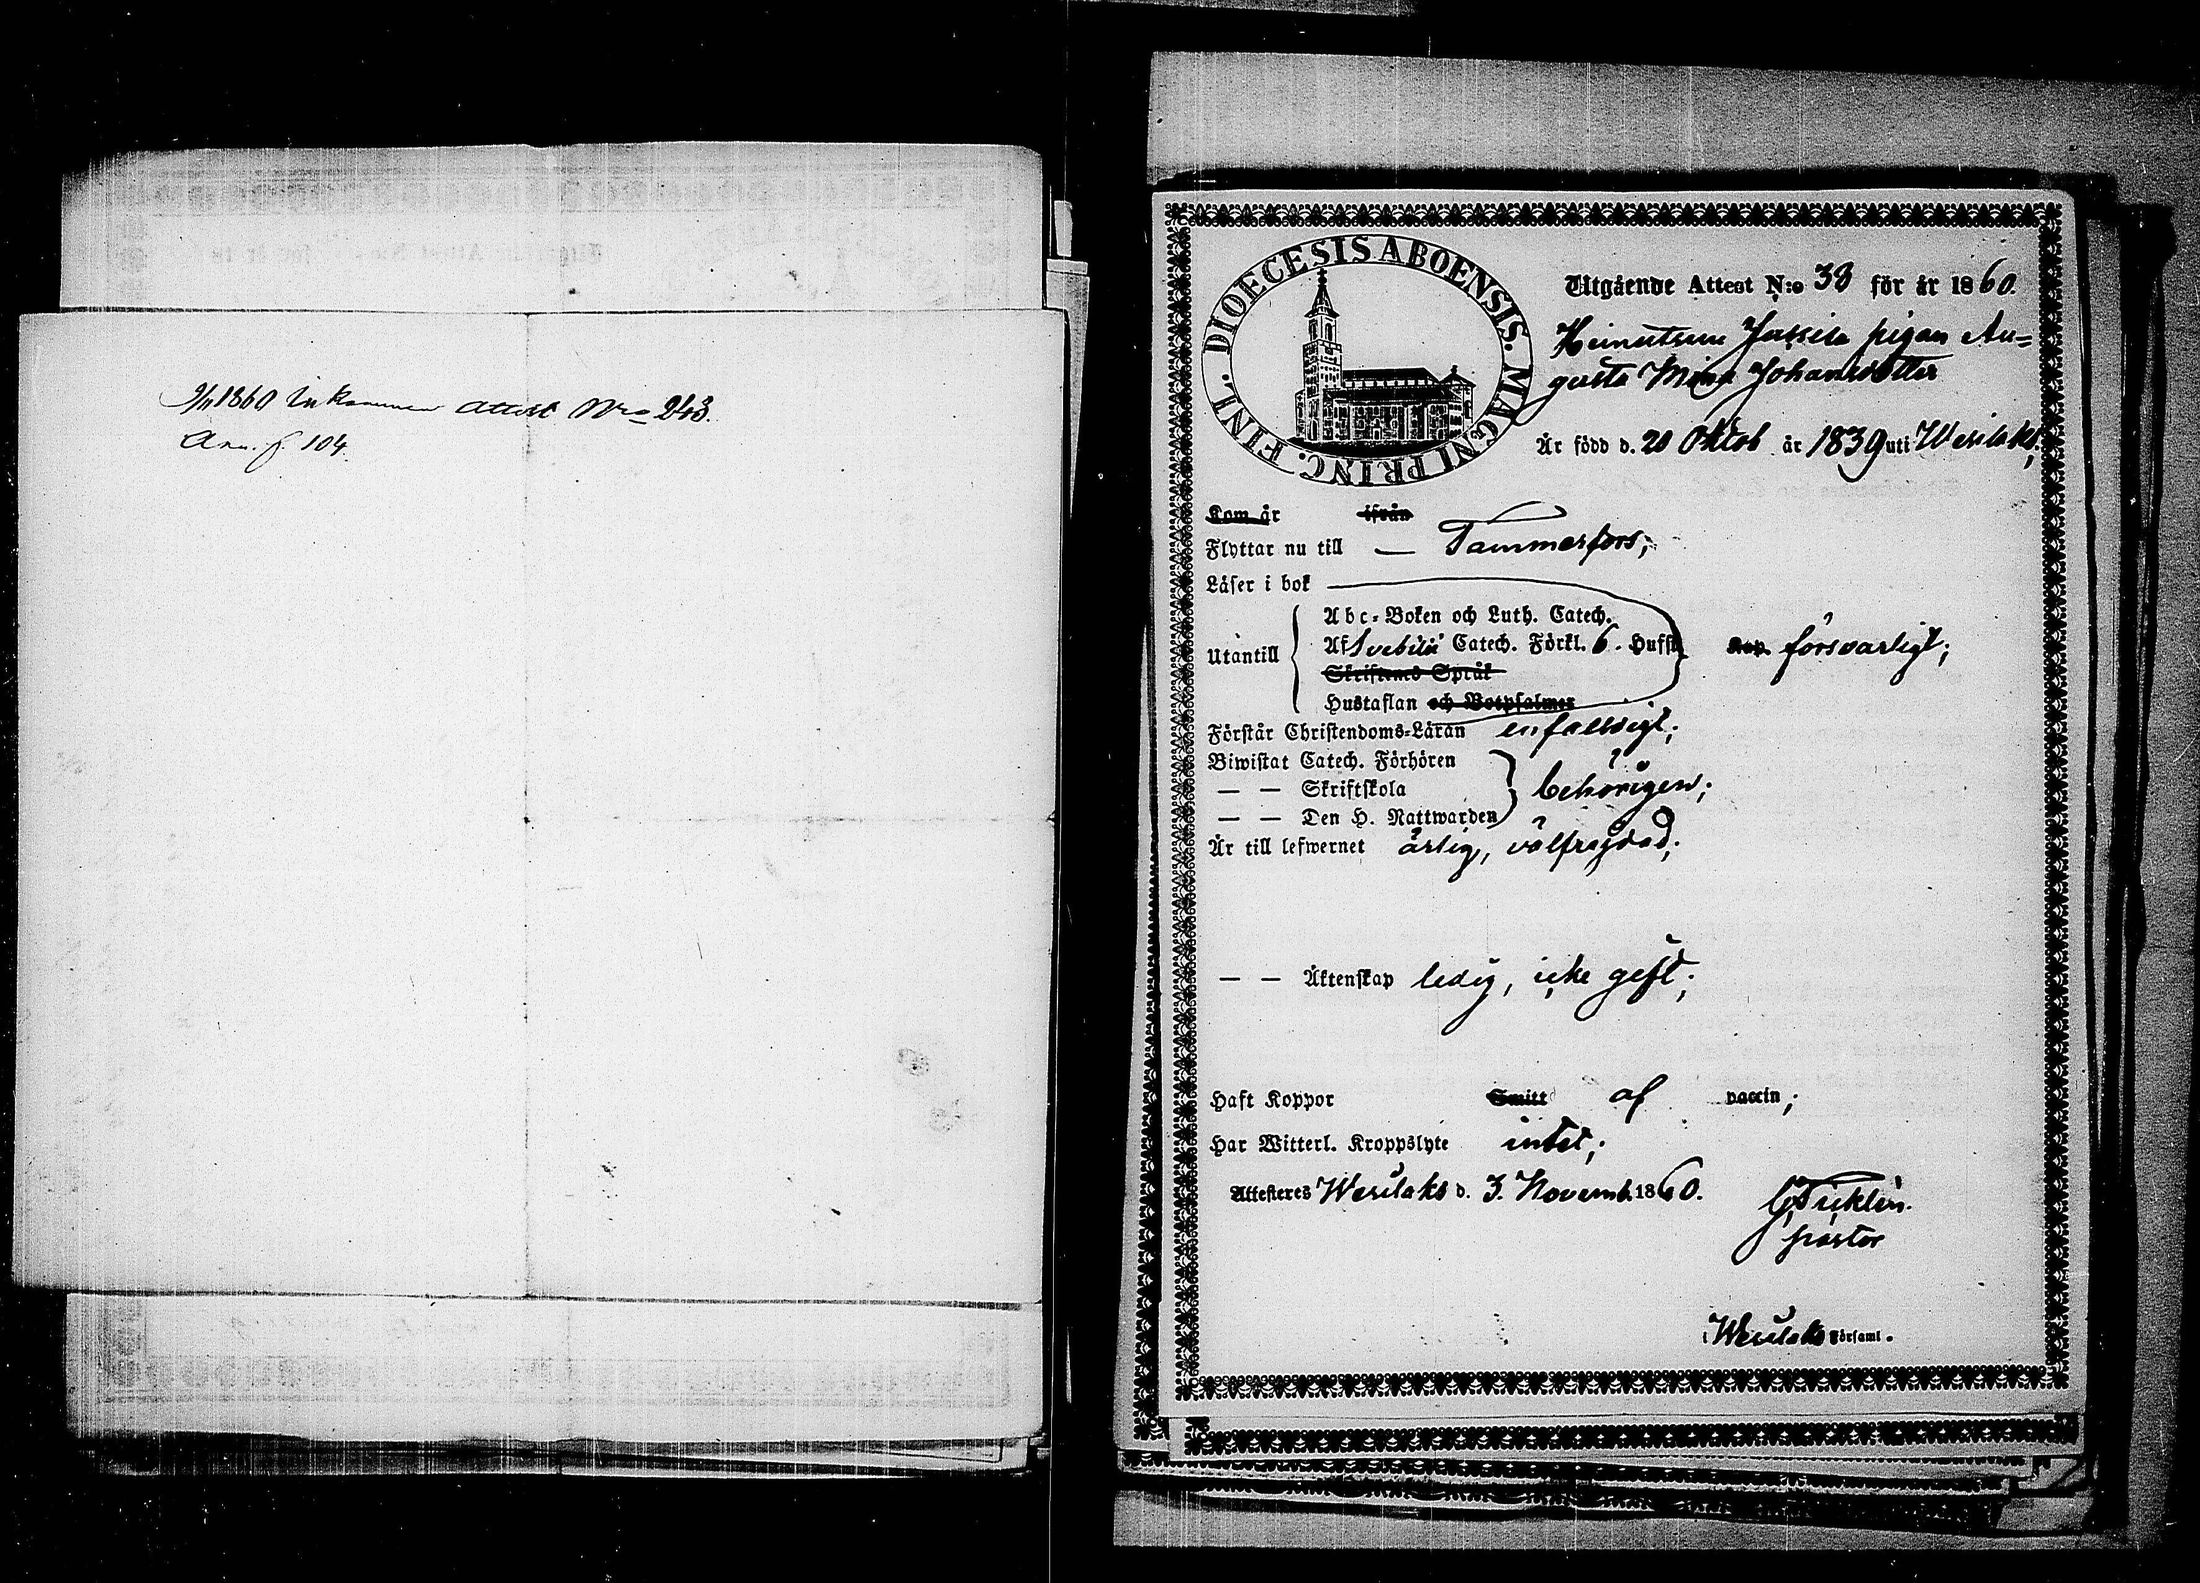 9/11 1860 Inkommen attest Nro 243.
Ann. f. 104.
DIOECESIS ABOENSIS. MAGNI PRINC. FINL.
Utgående Attest N:o 38 för år 1860.
Jussila pigan Au=
gusta Mina Johansdotter
Är född d. 20 Oktob år 1839 uti Wesilaks;
Kom år ifrån
Flyttar nu till — Tammerfors;
Läser i bok
Abc-Boken och Luth. Catech.
Utantill Af Svebilii Catech. Förkl. 6. Hufst försvarligt;
Skriftens Språk
Hustaflan och Botpsalmer
Förstår Christendoms-Läran enfaldigt;
Biwistat Catech. Förhören
— — Skriftskola behörigen;
— — Den H. Nattwarden
Är till lefwernet ärlig, välfrägdad;
— — Äktenskap ledig, icke gift;
Haft Koppor Smitt af vaccin;
Har Witterl. Kroppslyte intet;
Attesteres Wesilaks d. 3. Novemb. 1860.
pastor
i Wesilaks Församl.